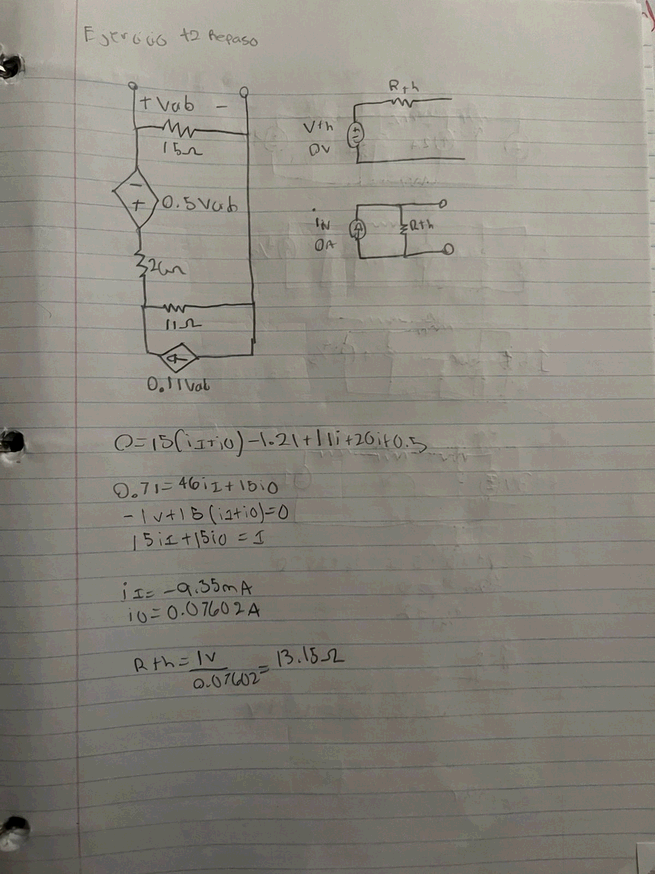 Ejercicio #2 Repaso
+ Vab -
15Ω
- +
0.5Vab
20Ω
11Ω
0.11Vab
Rth
Vth
0V
iN
0A
Rth
0=15(i1+i0)-1.21+11i+20i+0.5
0.71=46i1+15i0
-1v+15(i1+i0)=0
15i1+15i0=1
i1=-9.35mA
i0=0.07602A
Rth=1v/0.07602=13.15Ω